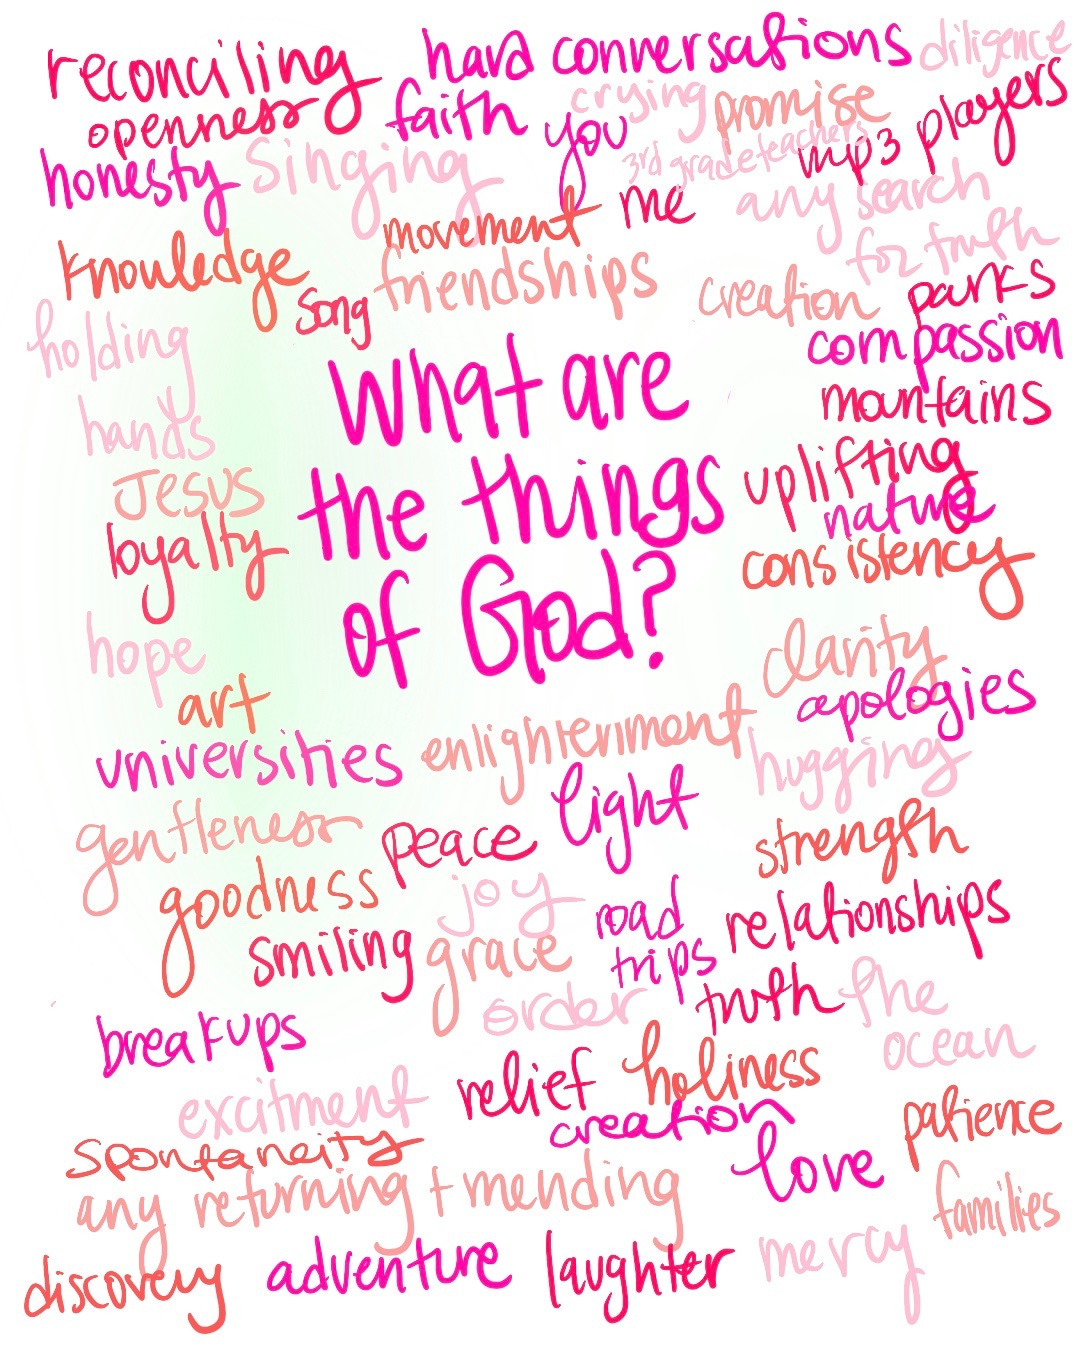 reconciling hard conversations diligence
openness faith crying promise
you mp3 players
honesty singing 3rd grade teachers
movement me any search
for truth
knowledge friendships
song creation parks
holding compassion
hands mountains
What are
the things
of God?
Jesus uplifting
loyalty nature
consistency
hope clarity
art apologies
universities enlightenment hugging
light
gentleness peace strength
goodness joy road
trips relationships
smiling grace
order truth the
ocean
breakups
excitment relief holiness
creation patience
spontaneity
any returning + mending love families
discovery adventure laughter mercy